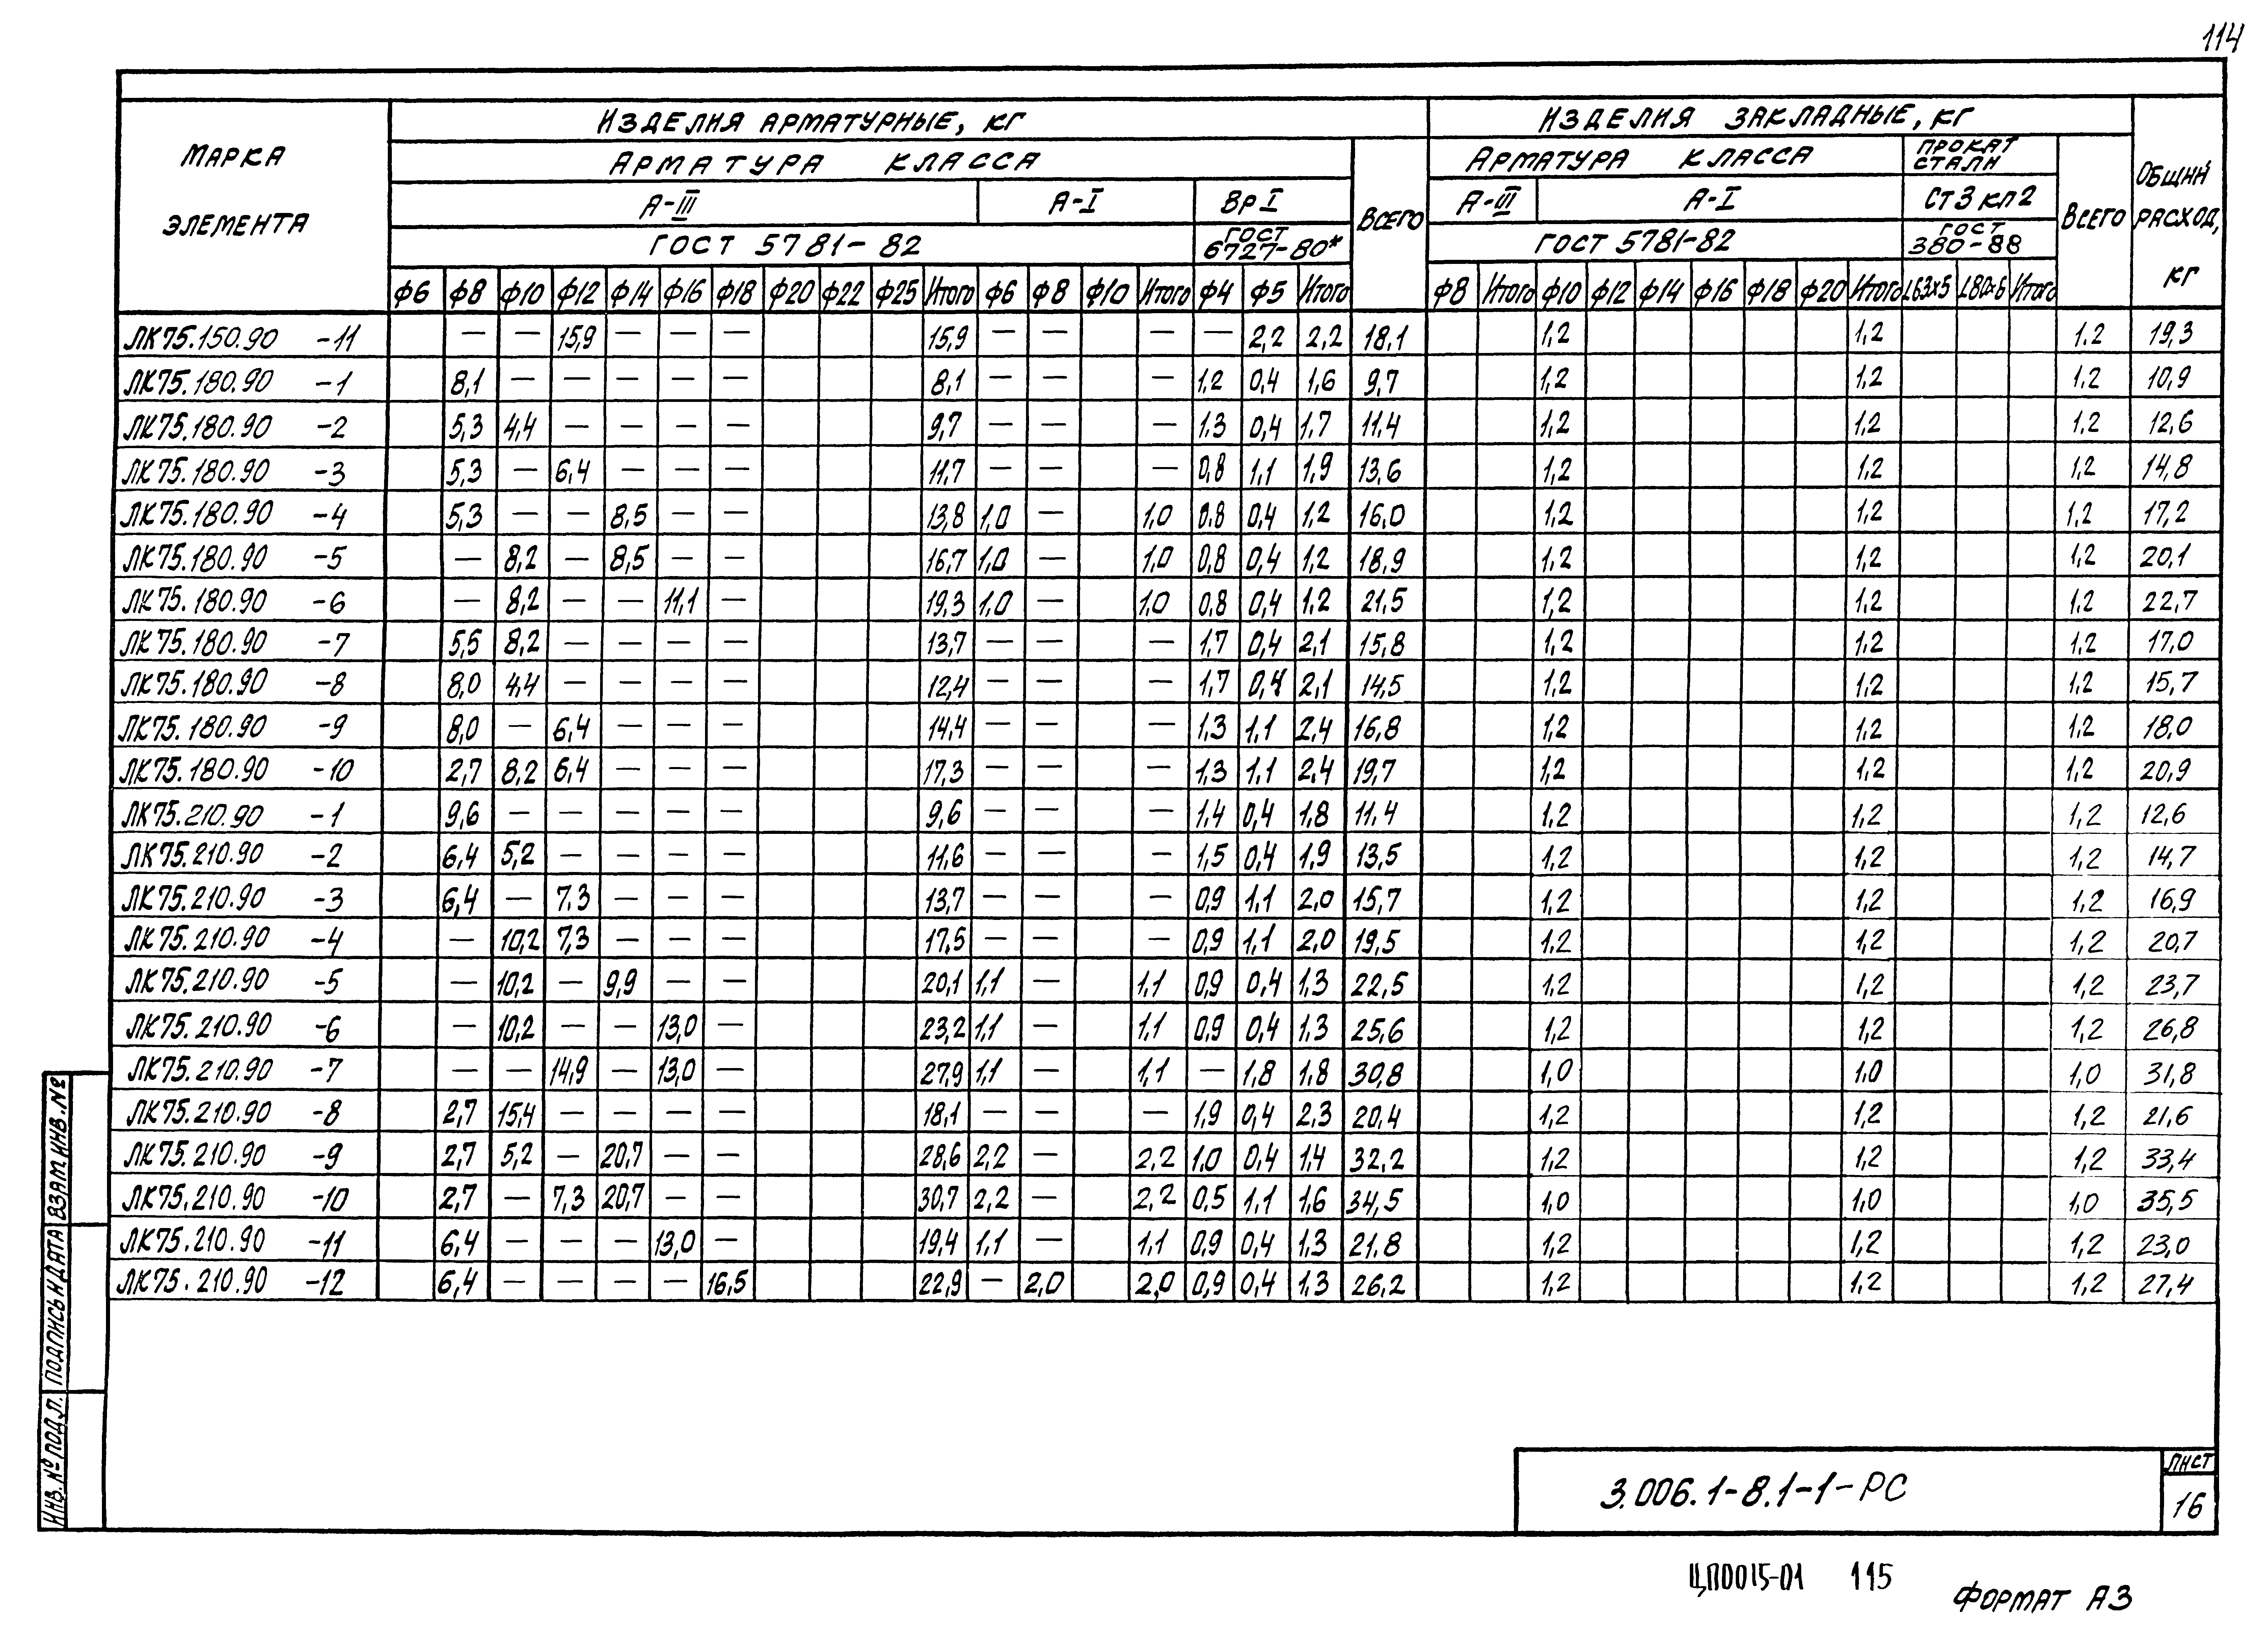 114
ИЗДЕЛИЯ АРМАТУРНЫЕ, КГ ИЗДЕЛИЯ ЗАКЛАДНЫЕ, КГ
МАРКА ЭЛЕМЕНТА АРМАТУРА КЛАССА ВСЕГО АРМАТУРА КЛАССА ПРОКАТ СТАЛИ ВСЕГО ОБЩИЙ РАСХОД, КГ
А-III А-I ВрI А-III А-I СТ3 КП2
ГОСТ 5781-82 ГОСТ 6727-80* ГОСТ 5781-82 ГОСТ 380-88
Ф6 Ф8 Ф10 Ф12 Ф14 Ф16 Ф18 Ф20 Ф22 Ф25 Итого Ф6 Ф8 Ф10 Итого Ф4 Ф5 Итого Ф8 Итого Ф10 Ф12 Ф14 Ф16 Ф18 Ф20 Итого L63х5 L80х6 Итого
ЛК75.150.90 -11 — — 15,9 — — — 15,9 — — — — 2,2 2,2 18,1 1,2 1,2 1.2 19,3
ЛК75.180.90 -1 8,1 — — — — — 8,1 — — — 1,2 0,4 1,6 9,7 1,2 1,2 1,2 10,9
ЛК75.180.90 -2 5,3 4,4 — — — — 9,7 — — — 1.3 0,4 1.7 11.4 1,2 1,2 1,2 12,6
ЛК75.180.90 -3 5,3 — 6,4 — — — 11,7 — — — 0,8 1,1 1,9 13,6 1,2 1,2 1,2 14,8
ЛК75.180.90 -4 5,3 — — 8,5 — — 13,8 1,0 — 1,0 0,8 0,4 1,2 16,0 1,2 1,2 1,2 17,2
ЛК75.180.90 -5 — 8,2 — 8,5 — — 16,7 1,0 — 1,0 0,8 0,4 1,2 18,9 1,2 1,2 1,2 20,1
ЛК75.180.90 -6 — 8,2 — — 11,1 — 19,3 1,0 — 1,0 0,8 0,4 1,2 21,5 1,2 1,2 1,2 22,7
ЛК75.180.90 -7 5,5 8,2 — — — — 13,7 — — — 1,7 0,4 2,1 15,8 1,2 1,2 1,2 17,0
ЛК75.180.90 -8 8,0 4,4 — — — — 12,4 — — — 1,7 0,4 2,1 14,5 1,2 1,2 1,2 15,7
ЛК75.180.90 -9 8,0 — 6,4 — — — 14,4 — — — 1,3 1,1 2,4 16,8 1,2 1,2 1,2 18,0
ЛК75.180.90 -10 2,7 8,2 6,4 — — — 17,3 — — — 1,3 1,1 2,4 19,7 1,2 1,2 1,2 20,9
ЛК75.210.90 -1 9,6 — — — — — 9,6 — — — 1,4 0,4 1,8 11,4 1,2 1,2 1,2 12,6
ЛК75.210.90 -2 6,4 5,2 — — — — 11,6 — — — 1,5 0,4 1,9 13,5 1,2 1,2 1,2 14,7
ЛК75.210.90 -3 6,4 — 7,3 — — — 13,7 — — — 0,9 1,1 2,0 15,7 1,2 1,2 1,2 16,9
ЛК75.210.90 -4 — 10,2 7,3 — — — 17,5 — — — 0,9 1,1 2,0 19,5 1,2 1,2 1,2 20,7
ЛК75.210.90 -5 — 10,2 — 9,9 — — 20,1 1,1 — 1,1 0,9 0,4 1,3 22,5 1,2 1,2 1,2 23,7
ЛК75.210.90 -6 — 10,2 — — 13,0 — 23,2 1,1 — 1,1 0,9 0,4 1,3 25,6 1,2 1,2 1,2 26,8
ЛК75.210.90 -7 — — 14,9 — 13,0 — 27,9 1,1 — 1,1 — 1,8 1,8 30,8 1,0 1,0 1,0 31,8
ЛК75.210.90 -8 2,7 15,4 — — — — 18,1 — — — 1,9 0,4 2,3 20,4 1,2 1,2 1,2 21,6
ЛК75.210.90 -9 2,7 5,2 — 20,7 — — 28,6 2,2 — 2,2 1,0 0,4 1,4 32,2 1,2 1,2 1,2 33,4
ЛК75.210.90 -10 2,7 — 7,3 20,7 — — 30,7 2,2 — 2,2 0,5 1,1 1,6 34,5 1,0 1,0 1,0 35,5
ЛК75.210.90 -11 6,4 — — — 13,0 — 19,4 1,1 — 1,1 0,9 0,4 1,3 21,8 1,2 1,2 1,2 23,0
ЛК75.210.90 -12 6,4 — — — — 16,5 22,9 — 2,0 2,0 0,9 0,4 1,3 26,2 1,2 1,2 1,2 27,4
ИНВ. № ПОДЛ. ПОДПИСЬ И ДАТА ВЗАМ ИНВ. №
3.006.1-8.1-1-РС
ЛИСТ
16
ЦП0015-01 115
ФОРМАТ А3